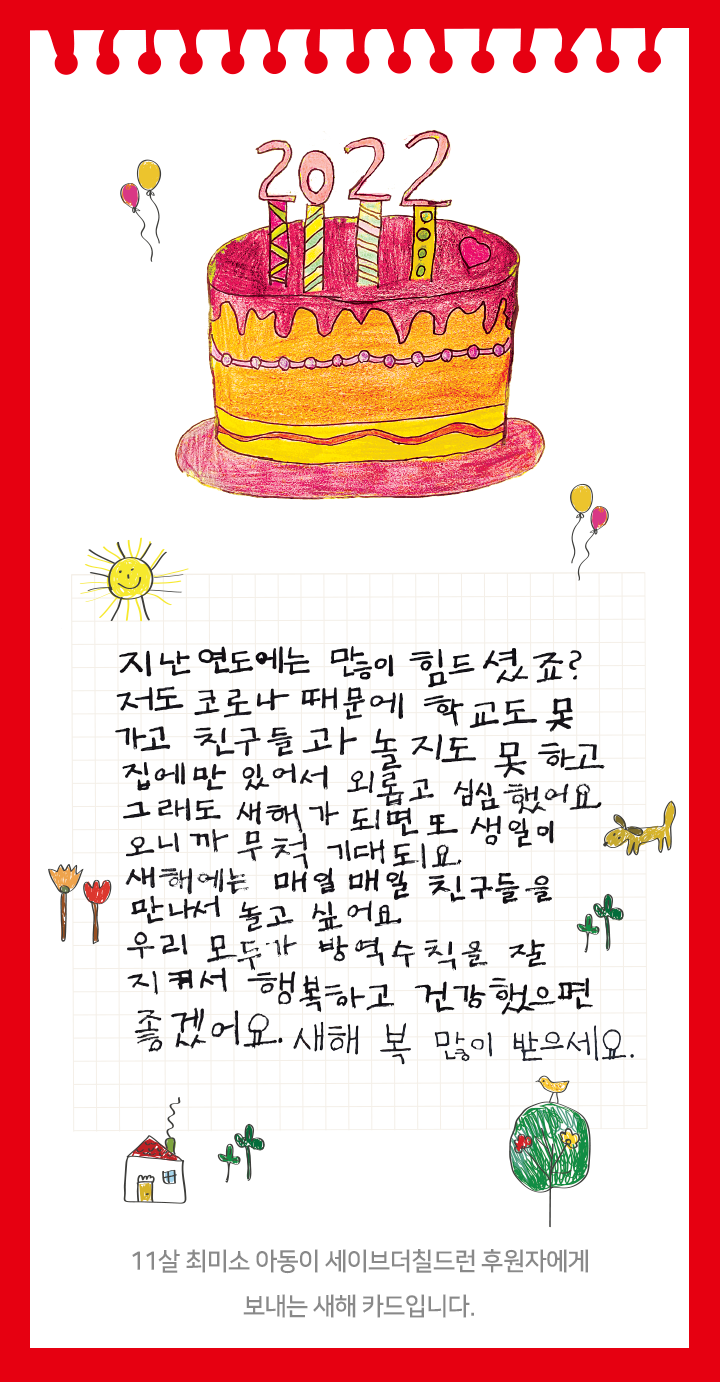 2022
지난 연도에는 많이 힘드셨죠?
저도 코로나 때문에 학교도 못
가고 친구들과 놀지도 못 하고
집에만 있어서 외롭고 심심했어요
그래도 새해가 되면 또 생일이
오니까 무척 기대되요.
새해에는 매일매일 친구들을
만나서 놀고 싶어요
우리 모두가 방역수칙을 잘
지켜서 행복하고 건강했으면
좋겠어요. 새해 복 많이 받으세요.
11살 최미소 아동이 세이브더칠드런 후원자에게
보내는 새해 카드입니다.